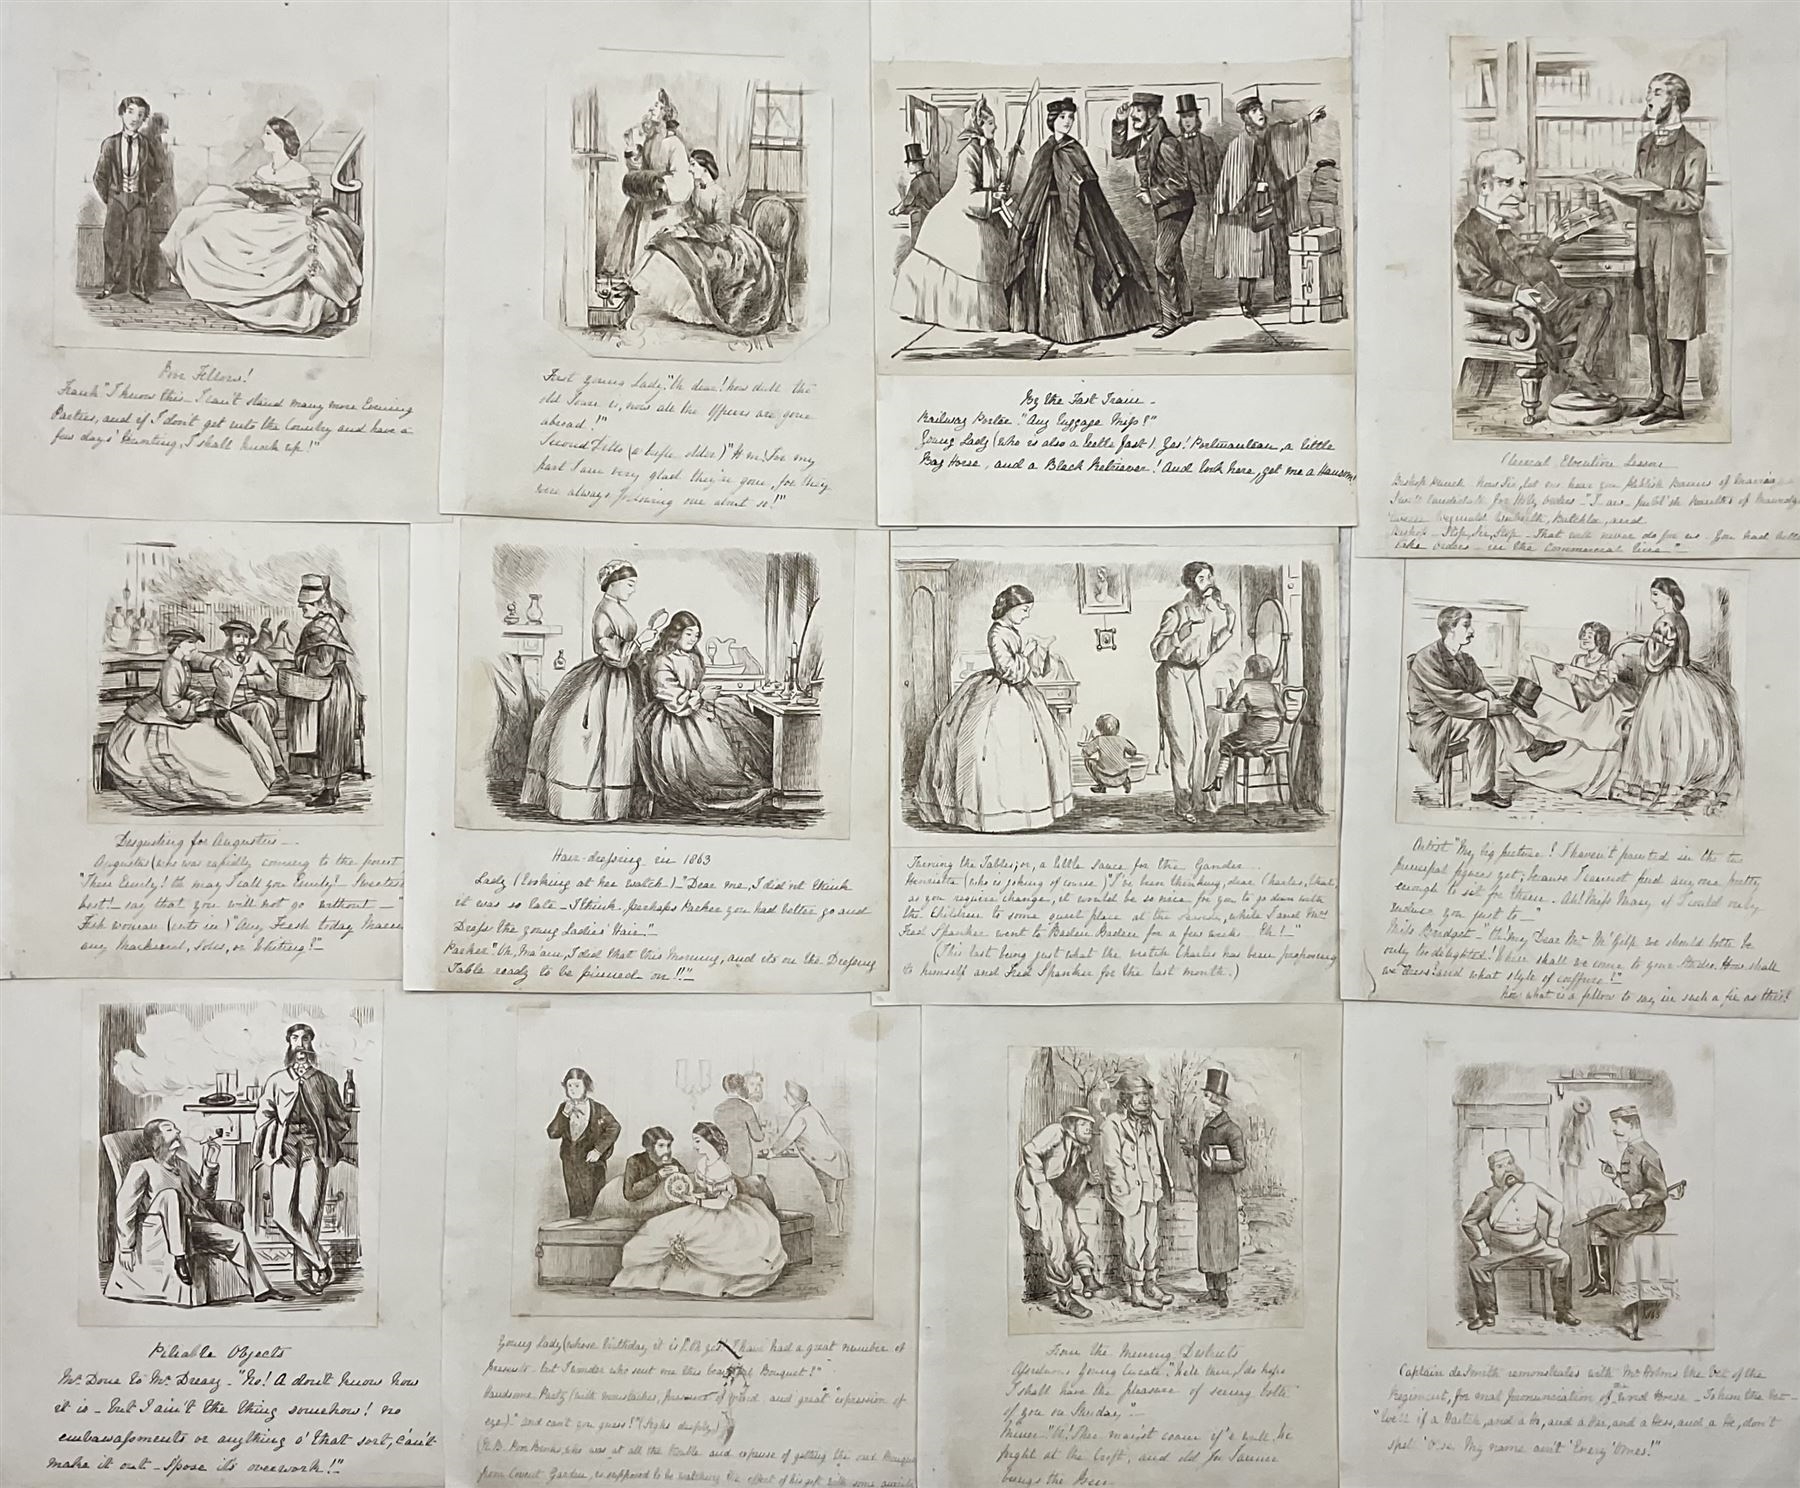 Poor Fellow!
Frank "I know this - I can't stand many more Evening
Parties, and if I don't get into the Country and have a
few days' Hunting, I shall knock up!"
First young Lady, "Oh dear! how dull the
old Town is, now all the Officers are gone
abroad!"
Second Ditto (a trifle older) "H'm! For my
part I am very glad they're gone, for they
were always following one about so!"
By the Fast Train -
Railway Porter. "Any luggage Miss?"
Young Lady (who is also a little fast). Yes! Portmanteau, a little
Bay Horse, and a Black Retriever! And look here, get me a Hansom!
Clerical Elocution Lesson
Bishop Punch. Now Sir, let me hear you publish Banns of Marriage
Bishop - Stop, Sir, Stop - That will never do for us. You had better
take orders - in the Commercial line."
Disgusting for Augustus -
Augustus (who was rapidly coming to the point
"Then Emily! Oh may I call you Emily? - Sweetest
best! - say that you will not go without - "
Fish woman (cuts in) "Any Fresh today Marm
any Mackerel, Soles, or Whiting?" -
Hair-dressing in 1863
Lady (Looking at her watch) - "Dear me, I did'nt think
it was so late - I think perhaps Parker you had better go and
Dress the young Ladies' Hair" -
Parker. "Oh, Ma'am, I did that this Morning, and its on the Dressing
Table ready to be pinned on!!" -
Turning the Tables; or, a little sauce for the Gander -
Henrietta (who is joking of course) "I've been thinking, dear Charles, that,
as you require change, it would be so nice for you to go down with
the Children to some quiet place at the Seaside, while I and Mrs
Fred Spanker went to Baden Baden for a few weeks. Eh!" -
(This last being just what the wretch Charles has been proposing
to himself and Fred Spanker for the last month.)
Artist "My big picture! I haven't painted in the two
principal figures yet, because I cannot find any one pretty
enough to sit for them. Ah! Miss Mary if I could only
induce you just to - "
Miss Bridget - "Oh! My Dear Mr McGilp we should both be
only too delighted! When shall we come to your Studio. How shall
we dress? and what style of coiffure?" -
Now what is a fellow to say in such a fix as this?
Pitiable Objects
Mr. Done to Mr. Dreary - "No! A don't know how
it is - but I ain't the thing somehow! no
embarrassments or anything o' that sort, c'an't
make it out - Spose it's overwork!"
Young Lady (whose birthday it is) "Oh yes! I have had a great number of
presents - but I wonder who sent me this beautiful Bouquet!"
Handsome Party (with moustaches, presence of mind and great "expression of
eye)." and can't you guess!" (Sighs deeply)
(N.B. Poor Binks, who was at all the trouble and expense of getting the said Bouquet
from Covent Garden, is supposed to be watching the effect of his gift with some anxiety
From the Mining Districts
Assiduous Young Curate. "Well then, I do hope
I shall have the pleasure of seeing both
of you on Sunday" -
Miner "Oi! Thee mayst coom if 'e wull, we
fight at the Croft, and old Joe Tanner
brings the Beer -
Captain de Smith remonstrates with Mr Holms the Vet of the
Regiment, for mal pronunciation of the word Horse - To him the Vet -
"Well if a Haitch, and a Ho, and a Har, and a Hess, and a He, don't
spell 'Orse. My name ain't 'Enery 'Omes!"